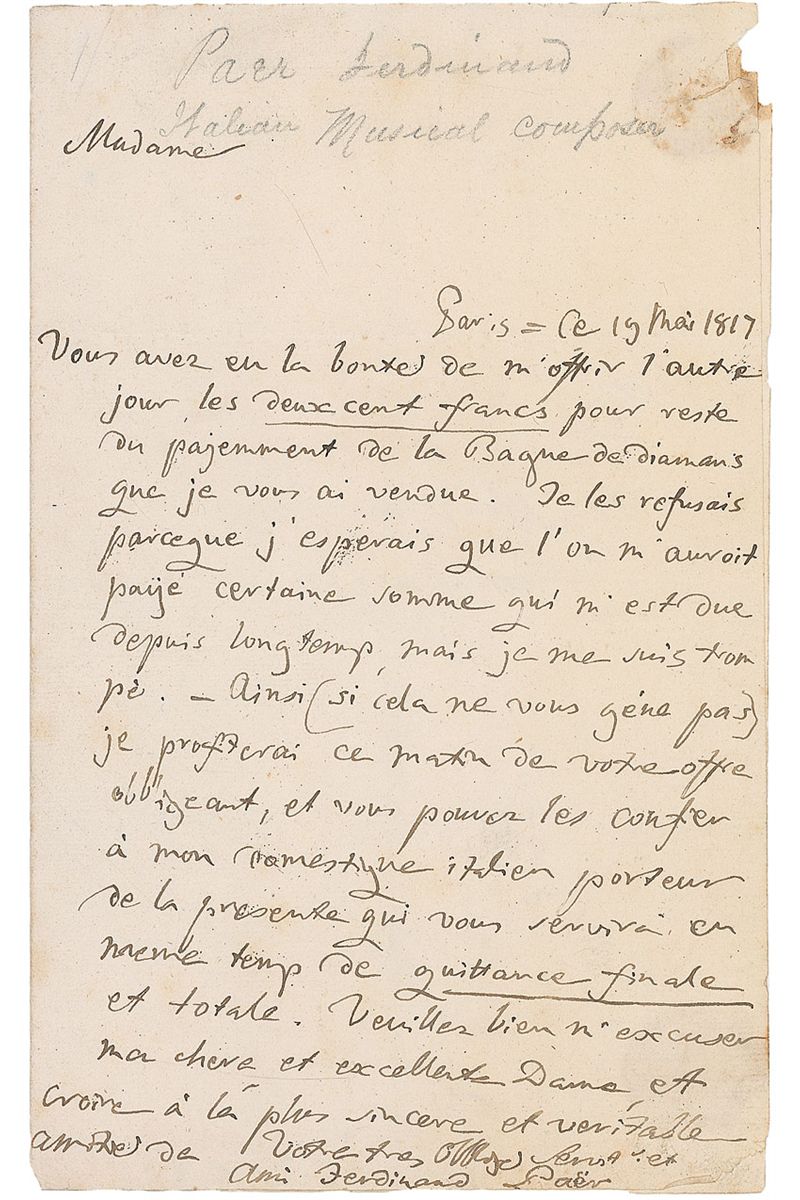 Paer Ferdinand
Italian Musical composer
Madame
Paris = Ce 19 Mai 1817
Vous avez eu la bonté de m'offrir l'autre
jour les deux cent francs pour reste
du pajemment de la Bague de diamans
que je vous ai vendue. Je les refusais
parceque j'esperais que l'on m'auroit
payé certaine somme qui m'est due
depuis longtemp, mais je me suis trom
pé. – Ainsi (si cela ne vous géne pas)
je profiterai ce matin de votre offre
obbligeant, et vous pouvez les confier
à mon domestique italien porteur
de la presente qui vous servirà en
meme temp de quittance finale
et totale. Veuillez bien m'excuser
ma chere et excellente Dame, et
croire à la plus sincere et veritable
amitié de Votre tres obbligé Servt. et
Ami Ferdinand Paër